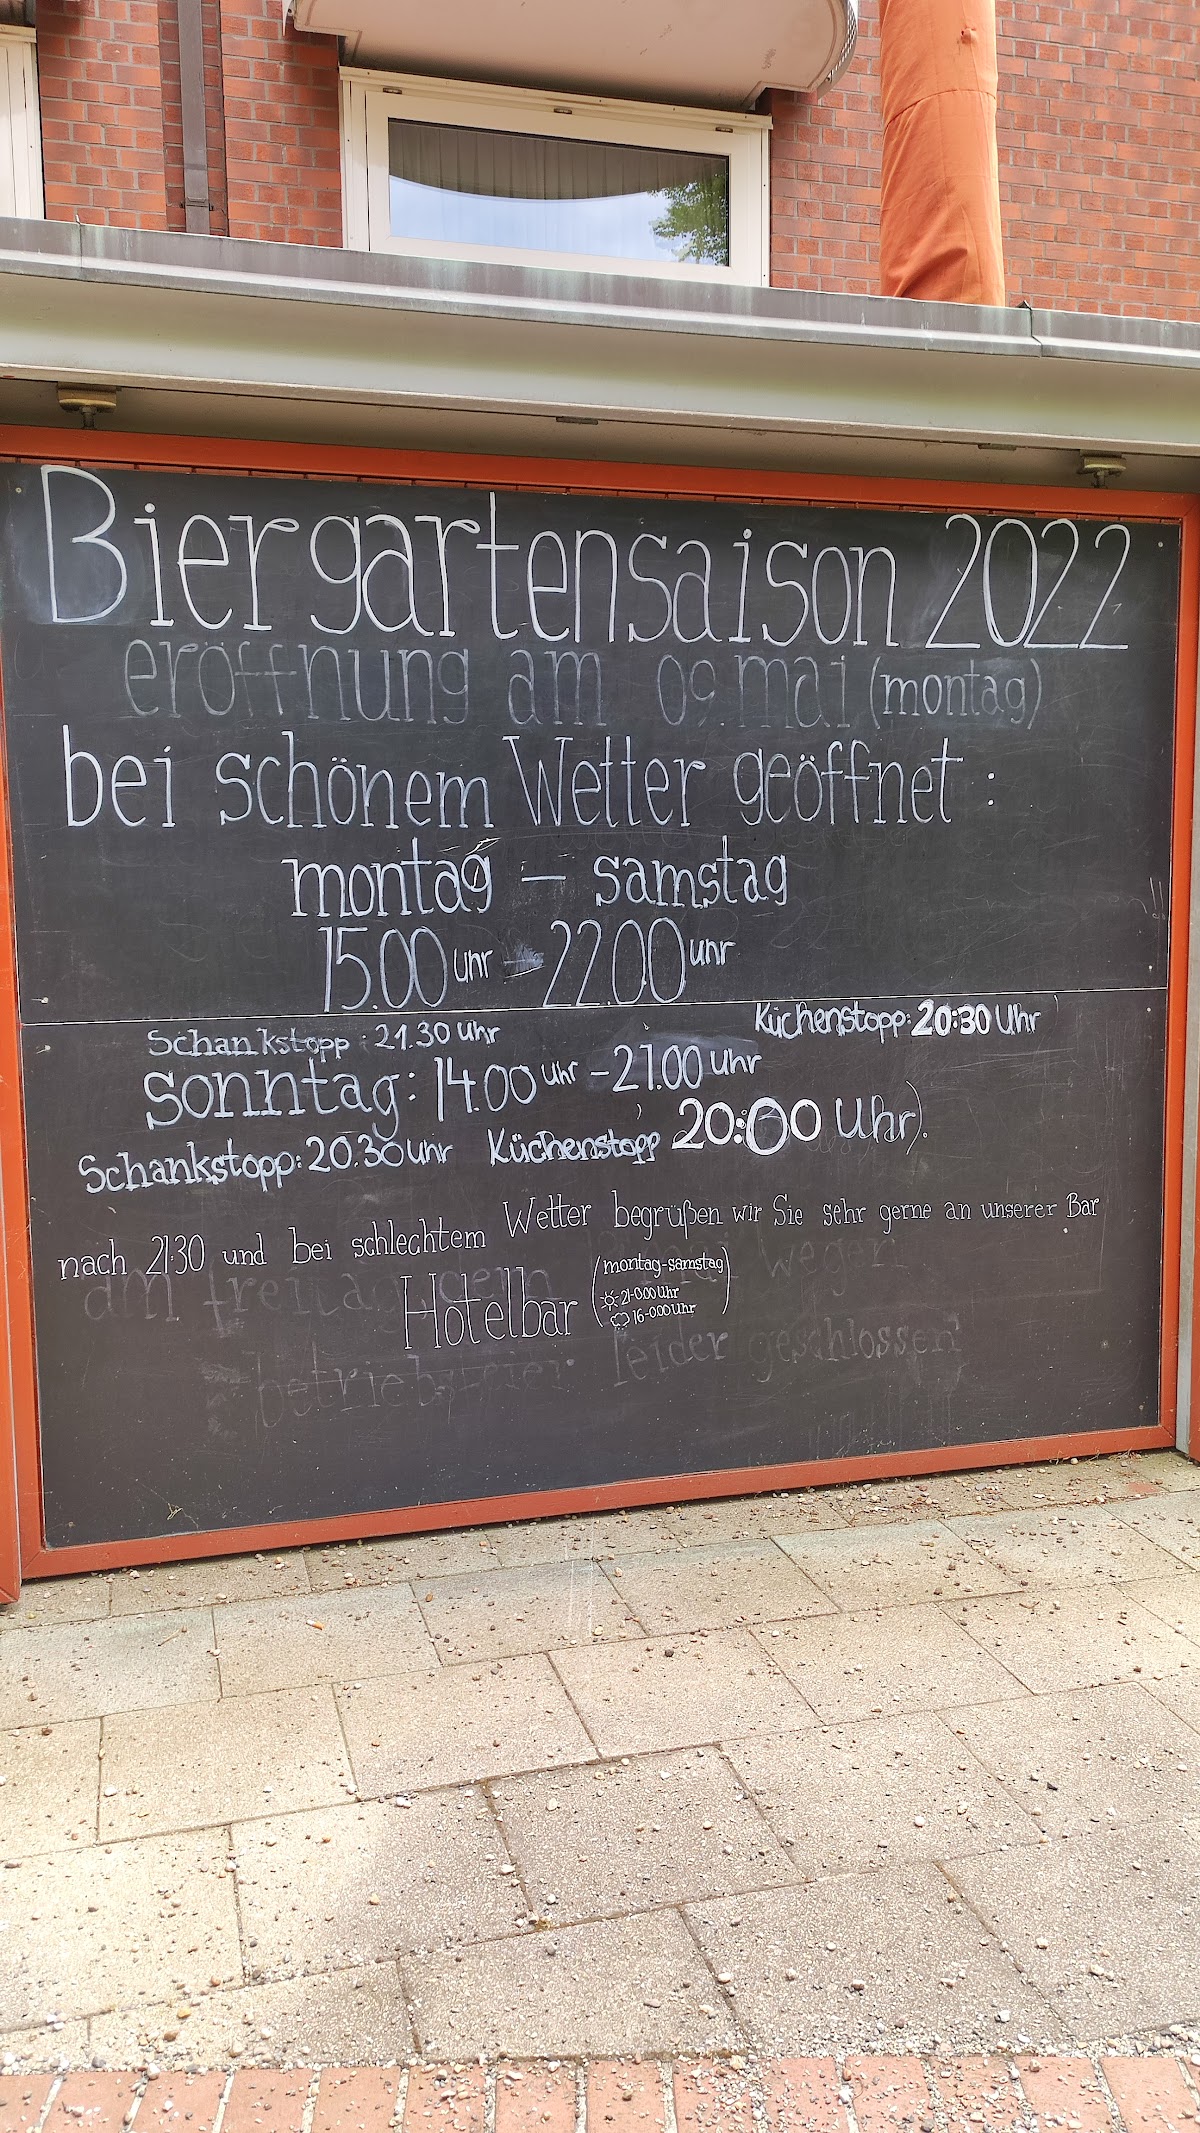 Biergartensaison 2022
eröffnung am 09. mai (montag)
bei schönem Wetter geöffnet :
montag – samstag
15.00 uhr – 22.00 uhr
Schankstopp : 21.30 Uhr Küchenstopp: 20:30 Uhr
Sonntag: 14.00 uhr – 21.00 uhr
Schankstopp: 20.30 uhr Küchenstopp 20:00 Uhr).
nach 21:30 und bei schlechtem Wetter begrüßen wir Sie sehr gerne an unserer Bar
Hotelbar (montag-samstag)
21-0.00 Uhr
16-0.00 Uhr
am freitag dem mai wegen
betriebsfeier leider geschlossen